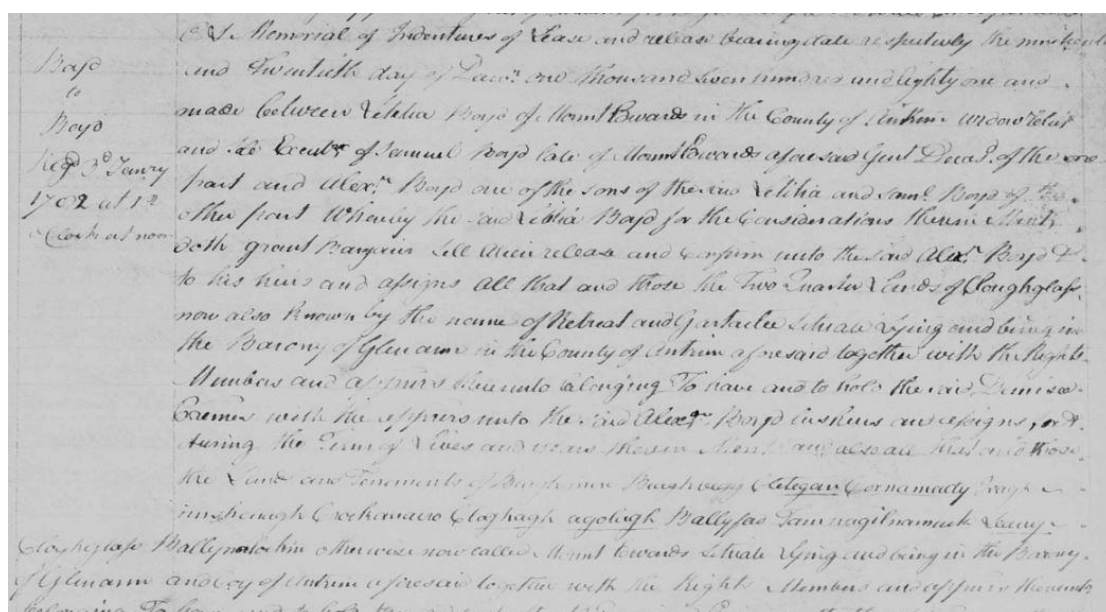 Boyd
to
Boyd
Regd 3d Janry
1782 at 12
o Clock at noon
A Memorial of Indentures of Lease and release bearing date respectively the nineteenth
and Twentieth day of Decr. one thousand seven hundred and eighty one and
made between Letitia Boyd of Mount Edwards in the County of Antrim widow relict
and Executx. of Samuel Boyd late of Mount Edwards aforesaid Gent Decd. of the one
part and Alexr. Boyd one of the sons of the said Letitia and Saml. Boyd of the
other part Whereby the said Letitia Boyd for the Considerations therein Mentd.
doth grant Bargain Sell alien release and Confirm unto the said Alexr. Boyd &
to his heirs and assigns All that and those the Two Quarter Lands of Cloughglass
now also Known by the name of Retreat and Gartaclee Situate Lying and being in
the Barony of Glenarm in the County of Antrim aforesaid together with the Rights
Members and appurs thereunto belonging To have and to hold the said Demised
Premes with the appurs unto the said Alexr. Boyd his heirs and assigns for &
during the Term of Lives and years therein Mentd. and also all that and those
the Lands and Tenements of Cornamady
Ballyfas
Cloghglass otherwise now called Mount Edwards Situate Lying and being in the Barony
of Glenarm and Coy of Antrim aforesaid together with the Rights Members and appurs thereunto
belonging To have and to hold